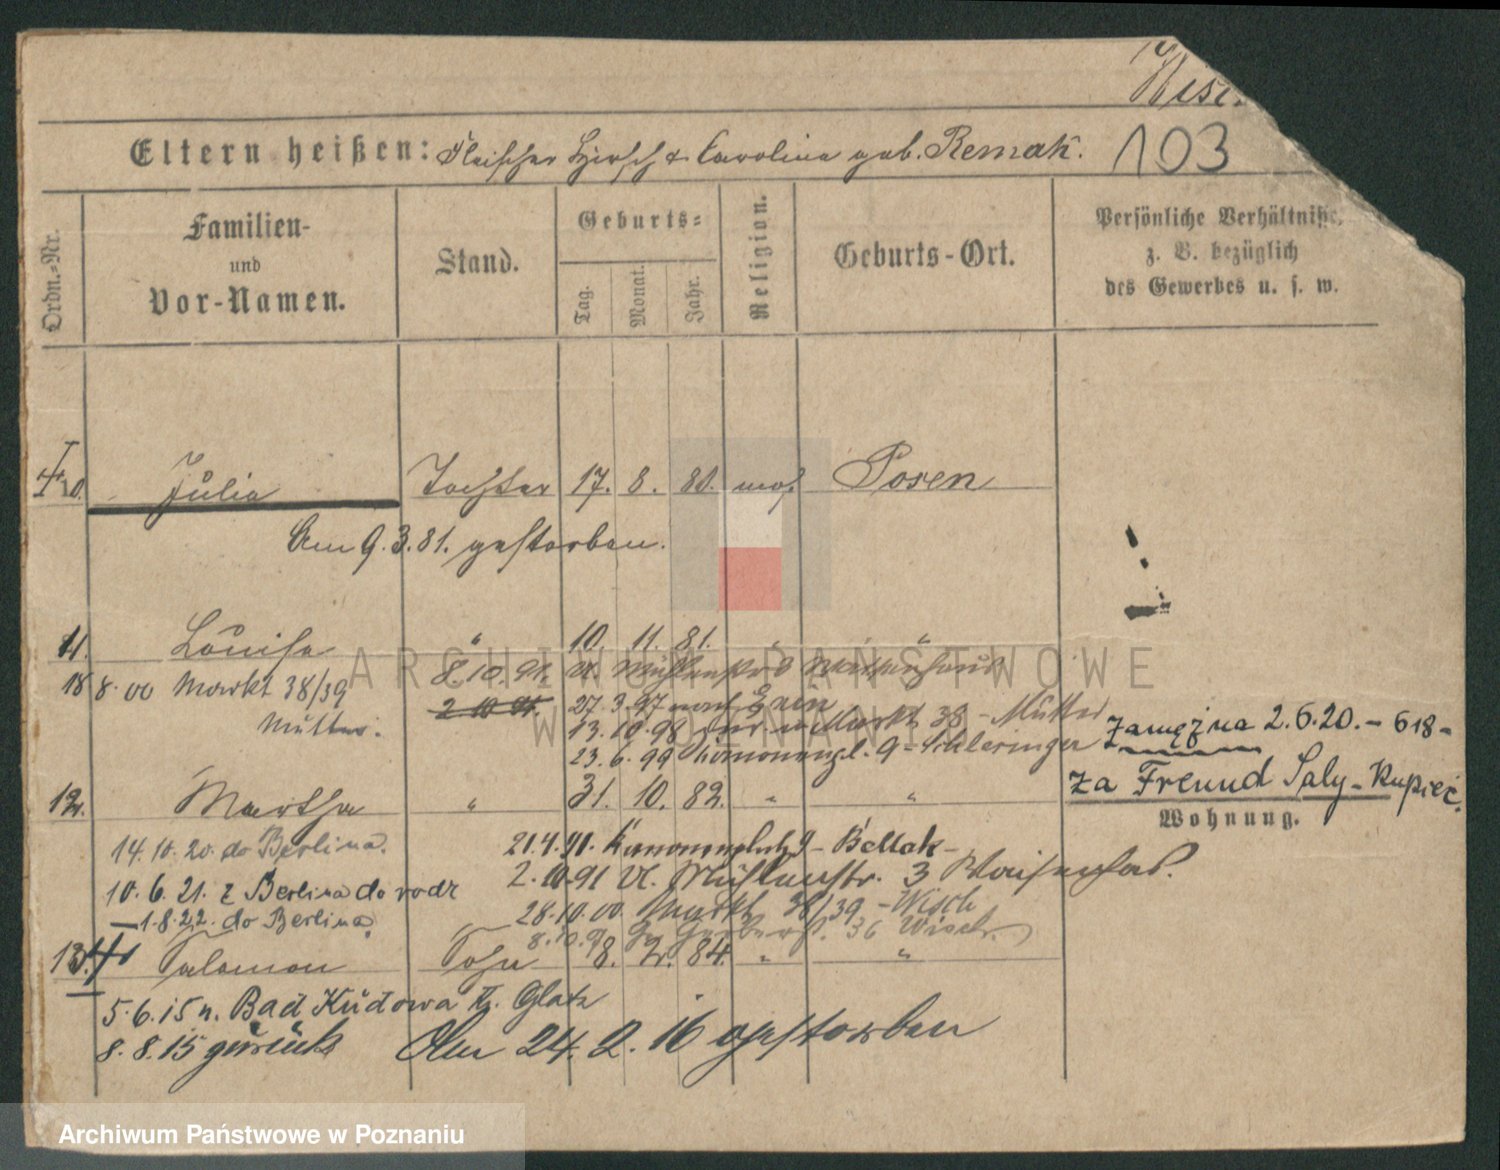 Eltern heißen: Fleischer Hirsch & Caroline geb. Remak. 103
Ordn.-Nr.
Familien- und Vor-Namen.
Stand.
Geburts=
Tag.
Monat.
Jahr.
Religion.
Geburts-Ort.
Persönliche Verhältnisse,
z. B. bezüglich
des Gewerbes u. s. w.
10. Julia Tochter 17. 8. 80. mos. Posen
Am 9.3.81. gestorben.
11. Louise " 10. 11. 81. " "
8.10.91. Vl. Mühlenstr. 3 Waisenhaus
18 8.00 Markt 38/39
2.10.91.
27.3.97 nach
Mutter.
13.10.98 Markt 38 - Mutter
23.6.99 Kanonenpl. 9 - Schlesinger
Zamężna 2.6.20. - 618 -
za Freund Saly - Kupiec.
12. Martha " 31. 10. 82. " "
Wohnung.
14.10.20. do Berlina.
21.4.91. Kanonenplatz 9 - Bellak -
10.6.21. z Berlina do rodz
2.10.91 Vl. Mühlenstr. 3 Waisenhs.
28.10.00. Markt 38/39 - Wisch
- 1.8.22. do Berlina.
Gerberst. 36 Wisch.
13. Salomon Sohn 8. 2. 84. " "
5.6.15 n. Bad Kudowa Kr. Glatz
8.8.15 zurück Am 24.2.16 gestorben
ARCHIWUM PAŃSTWOWE
W POZNANIU
Archiwum Państwowe w Poznaniu